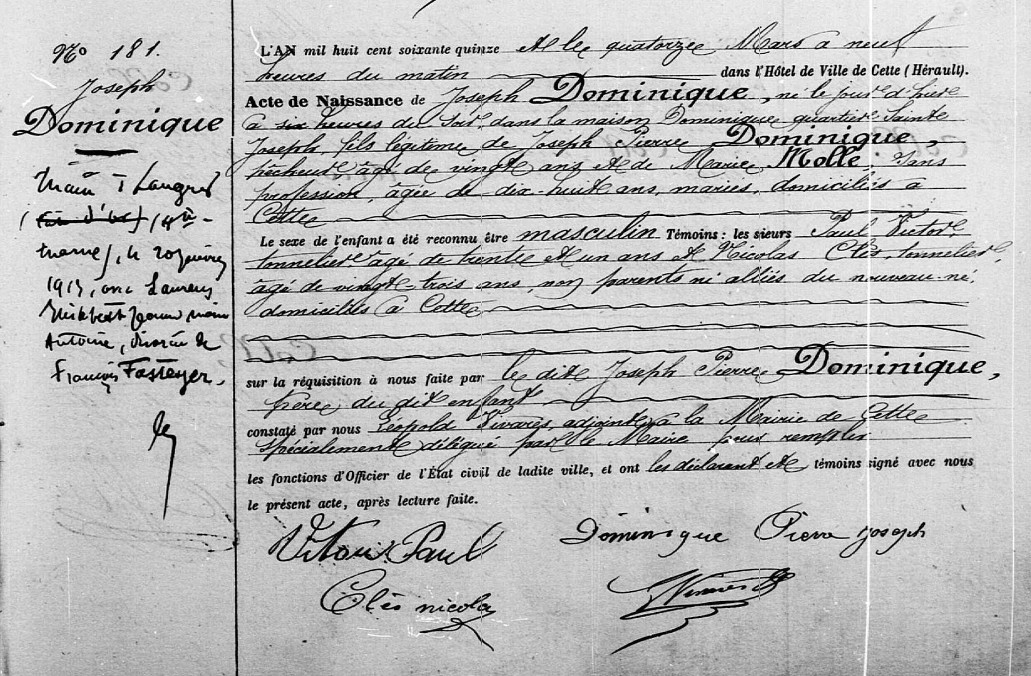 No 181.
Joseph
Dominique
Marié à Langres
(Côte d'or) (Hte-
marne), le 20 janvier
1913, avec
Jeanne Marie
Antoine, divorcée de
François
L'AN mil huit cent soixante quinze et le quatorze Mars à neuf
heures du matin dans l'Hôtel de Ville de Cette (Hérault).
Acte de Naissance de Joseph Dominique, né le jour d'hier
à six heures du soir, dans la maison Dominique quartier Sainte
Joseph, fils légitime de Joseph Pierre Dominique,
pêcheur âgé de vingt ans et de Marie Molle, sans
profession, âgée de dix-huit ans, mariés, domiciliés à
Cette
Le sexe de l'enfant a été reconnu être masculin Témoins : les sieurs Paul Victor
tonnelier âgé de trente et un ans et Nicolas Clès, tonnelier,
âgé de vingt-trois ans, non parents ni alliés du nouveau-né,
domiciliés à Cette
sur la réquisition à nous faite par le dit Joseph Pierre Dominique,
père du dit enfant
constaté par nous Léopold Vivarès, adjoint à la Mairie de Cette
spécialement délégué par le Maire pour remplir
les fonctions d'Officier de l'État civil de ladite ville, et ont les déclarant et témoins signé avec nous
le présent acte, après lecture faite.
Paul
Dominique Pierre Joseph
Clès nicolas